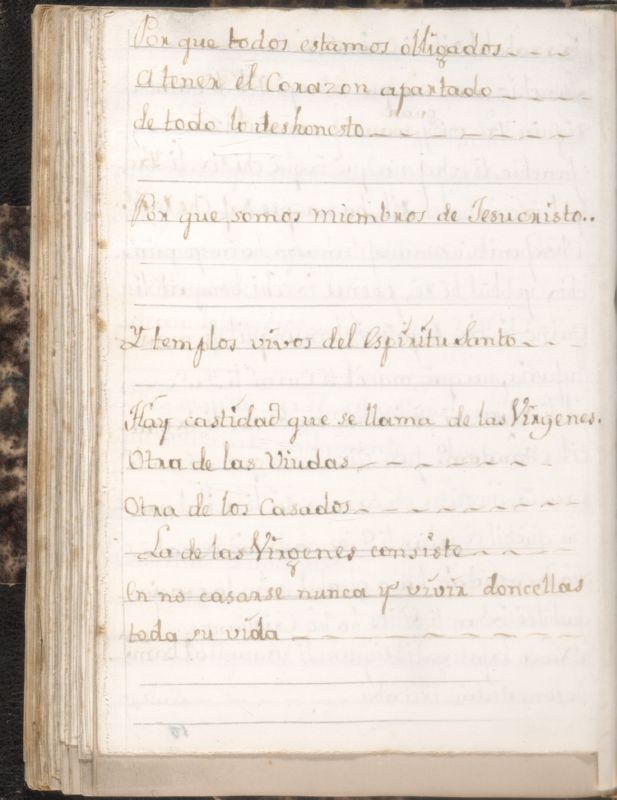 Por que todos estamos obligados
A tener el Corazon apartado
de todo lo deshonesto
Por que somos miembros de Jesucristo..
Y templos vivos del Espiritu Santo
Hay castidad que se llama de las Virgenes.
Otra de las Viudas
Otra de los Casados
La de las Virgenes consiste
En no casarse nunca y vivir doncellas
toda su vida